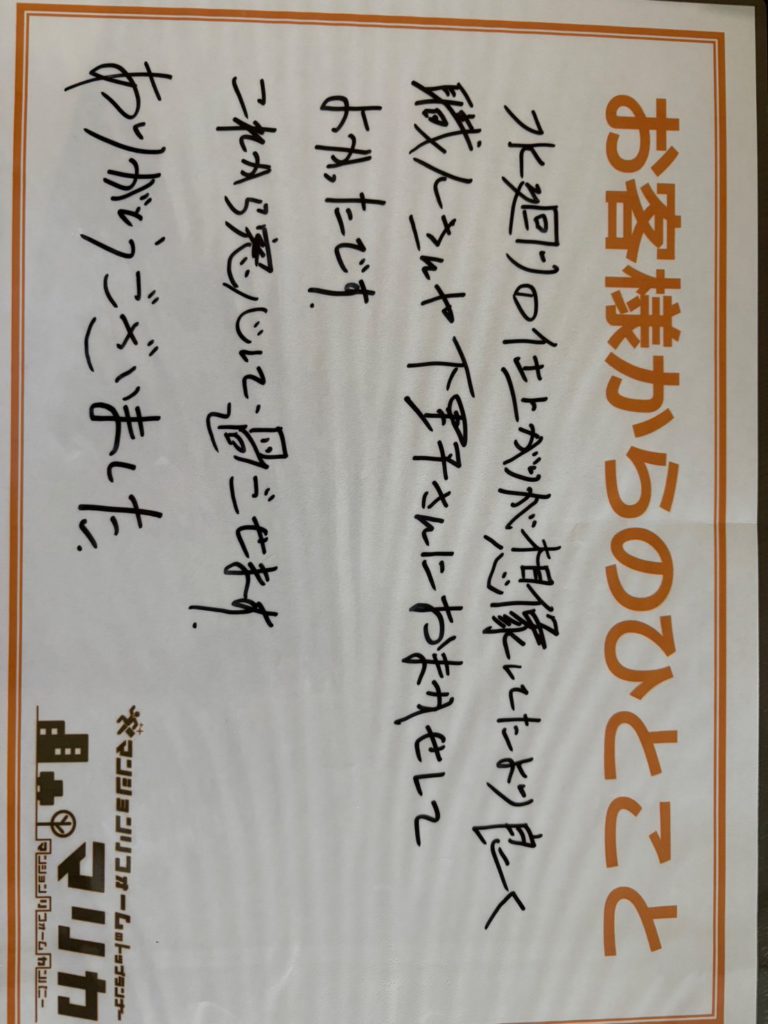 お客様からのひとこと
水廻りの仕上がりが想像してたより良く
職人さんや下野さんにおまかせして
よかったです.
これから安心して、過ごせます.
ありがとうございました.
マンションリフォームのトップランナー
マリカ
マンションリフォームカンパニー